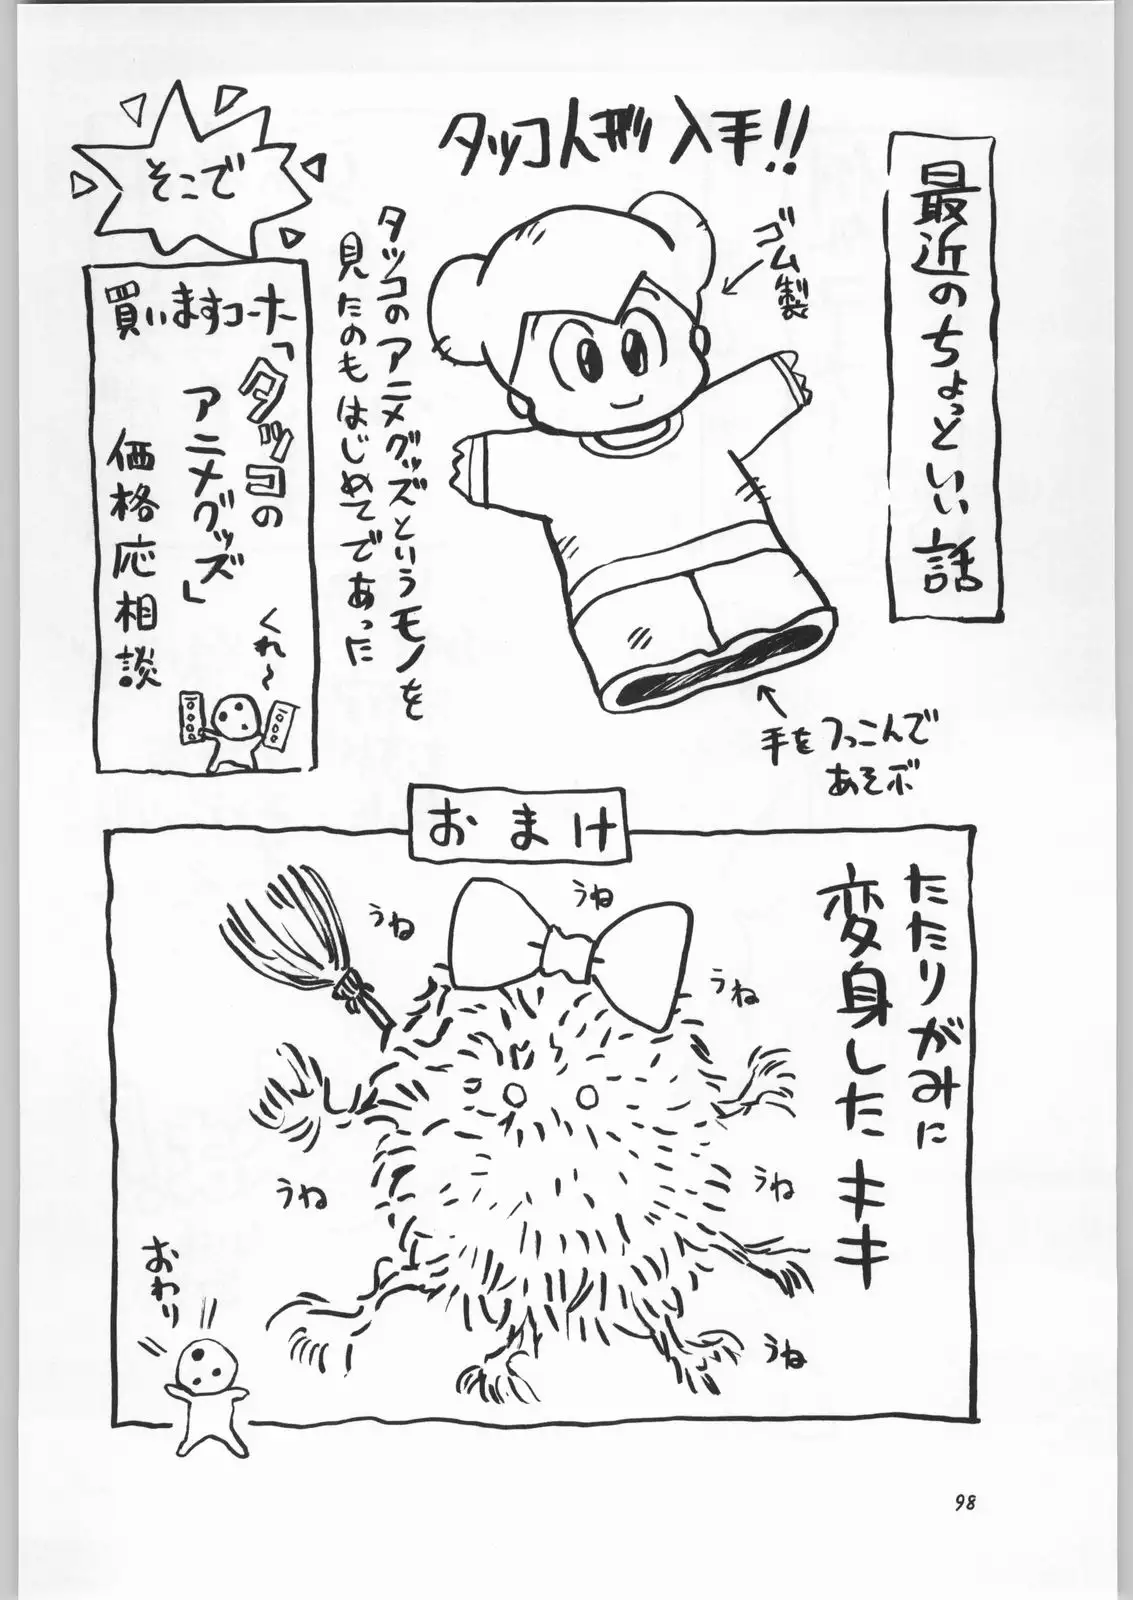 最近のちょっといい話
タッコ人形 入手!!
ゴム製
タッコのアニメグッズというモノを
見たのもはじめてであった
手をつっこんで
あそぶ
そこで
買いますコーナー
「タッコの
アニメグッズ」
価格応相談
くれ〜
おまけ
たたりがみに
変身したキキ
うね
うね
うね
うね
うね
うね
おわり
98